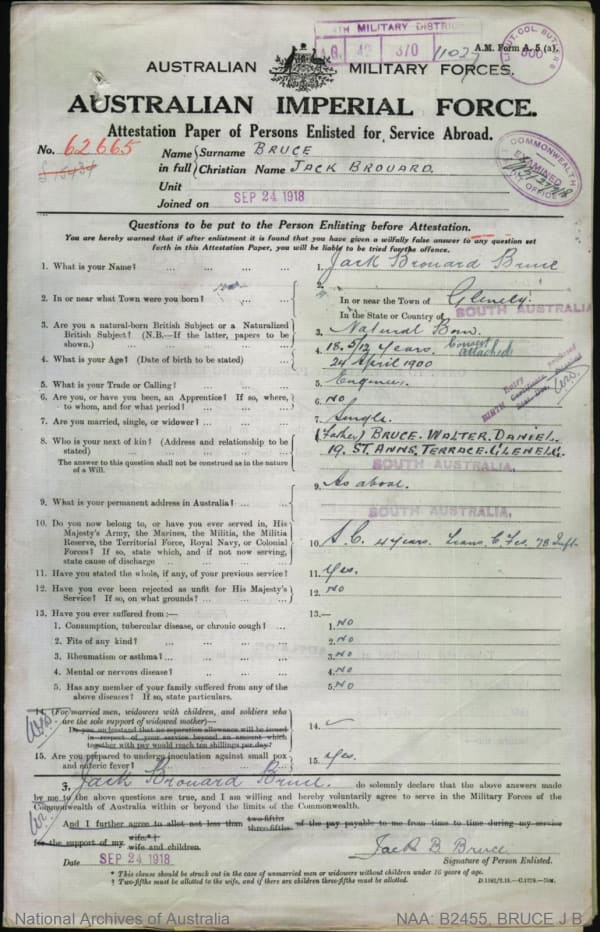 4TH MILITARY DISTRICT
42 370
11027
A.M. Form A. 5 (a).
LIEUT-COL. BUTLERS
500
AUSTRALIAN MILITARY FORCES.
AUSTRALIAN IMPERIAL FORCE.
Attestation Paper of Persons Enlisted for Service Abroad.
No. 62665
Name in full { Surname BRUCE
Christian Name JACK BROUARD.
COMMONWEALTH
EXAMINED
PAY OFFICE
Unit
Joined on SEP 24 1918
Questions to be put to the Person Enlisting before Attestation.
You are hereby warned that if after enlistment it is found that you have given a wilfully false answer to any question set
forth in this Attestation Paper, you will be liable to be tried for the offence.
1. What is your Name? ... ... ... ... 1. Jack Brouard Bruce
2. In or near what Town were you born? ... ... 2. In or near the Town of Glenelg.
In the State or Country of SOUTH AUSTRALIA
3. Are you a natural-born British Subject or a Naturalized
British Subject? (N.B.—If the latter, papers to be
shown.) ... ... ... ... 3. Natural Born.
4. What is your Age? (Date of birth to be stated) ... 4. 18 5/12 years. Consent attached
24 April 1900
5. What is your Trade or Calling? ... ... ... 5. Engineer.
6. Are you, or have you been, an Apprentice? If so, where,
to whom, and for what period? ... ... ... 6. NO
7. Are you married, single, or widower? ... ... 7. Single.
8. Who is your next of kin? (Address and relationship to be
stated) ... ... ... ... (Father) BRUCE. WALTER. DANIEL.
19. ST. ANNS, TERRACE. GLENELG.
The answer to this question shall not be construed as in the nature
of a Will. SOUTH AUSTRALIA.
9. What is your permanent address in Australia? ... ... 9. As above.
SOUTH AUSTRALIA,
10. Do you now belong to, or have you ever served in, His
Majesty's Army, the Marines, the Militia, the Militia
Reserve, the Territorial Force, Royal Navy, or Colonial
Forces? If so, state which, and if not now serving,
state cause of discharge ... ... ... 10. S.C. 4 years. Trans. C. Fcs. 78 Inft.
11. Have you stated the whole, if any, of your previous service? 11. Yes.
12. Have you ever been rejected as unfit for His Majesty's
Service? If so, on what grounds? ... ... ... 12. NO
13. Have you ever suffered from :— 13.—
1. Consumption, tubercular disease, or chronic cough? ... 1. NO
2. Fits of any kind? ... ... ... ... 2. NO
3. Rheumatism or asthma? ... ... ... ... 3. NO
4. Mental or nervous disease? ... ... ... 4. NO
5. Has any member of your family suffered from any of the
above diseases? If so, state particulars. 5. NO
14. (For married men, widowers with children, and soldiers who
are the sole support of widowed mother)—
Do you understand that no separation allowance will be issued
in respect of your service beyond an amount which
together with pay would reach ten shillings per day? 14.
15. Are you prepared to undergo inoculation against small pox
and enteric fever? ... ... ... ... 15. Yes.
I, Jack Brouard Bruce. do solemnly declare that the above answers made
by me to the above questions are true, and I am willing and hereby voluntarily agree to serve in the Military Forces of the
Commonwealth of Australia within or beyond the limits of the Commonwealth.
And I further agree to allot not less than two-fifths three-fifths of the pay payable to me from time to time during my service
for the support of my wife.*† wife and children.
Date SEP 24 1918
Jack B Bruce
Signature of Person Enlisted.
* This clause should be struck out in the case of unmarried men or widowers without children under 16 years of age.
† Two-fifths must be allotted to the wife, and if there are children three-fifths must be allotted.
National Archives of Australia
NAA: B2455, BRUCE J B